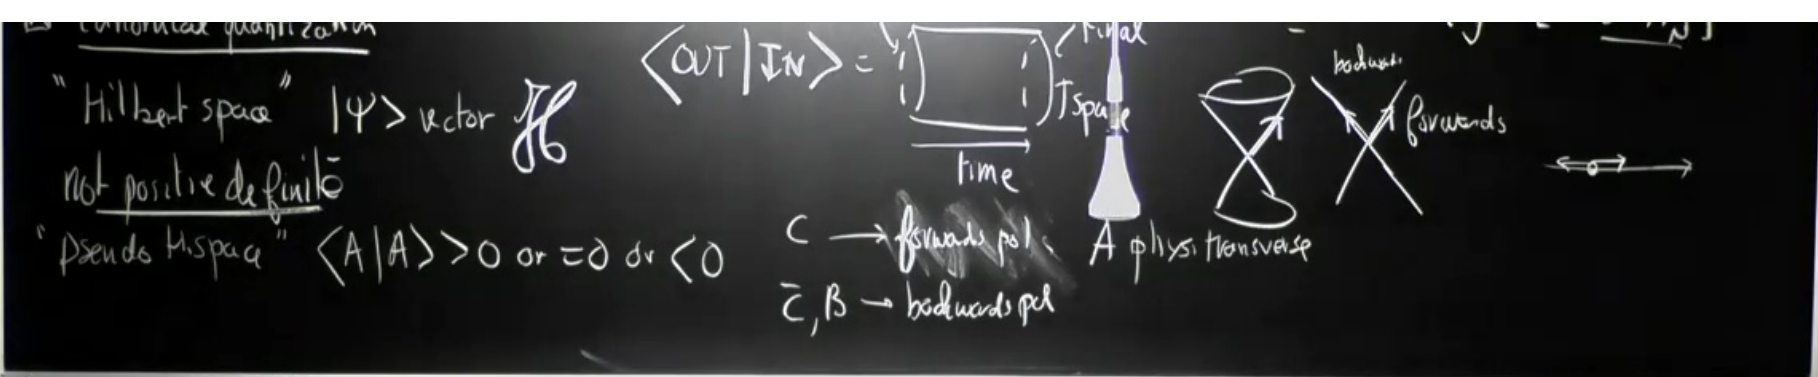 canonical quantization
"Hilbert space" |Ψ> vector ℋ
not positive definite
"Pseudo H.space" ⟨A|A⟩ > 0 or = 0 or < 0
⟨OUT|IN⟩ =
Final
Space
time
C → forwards pol.
C̄, B → backwards pol
A phys. transverse
forwards